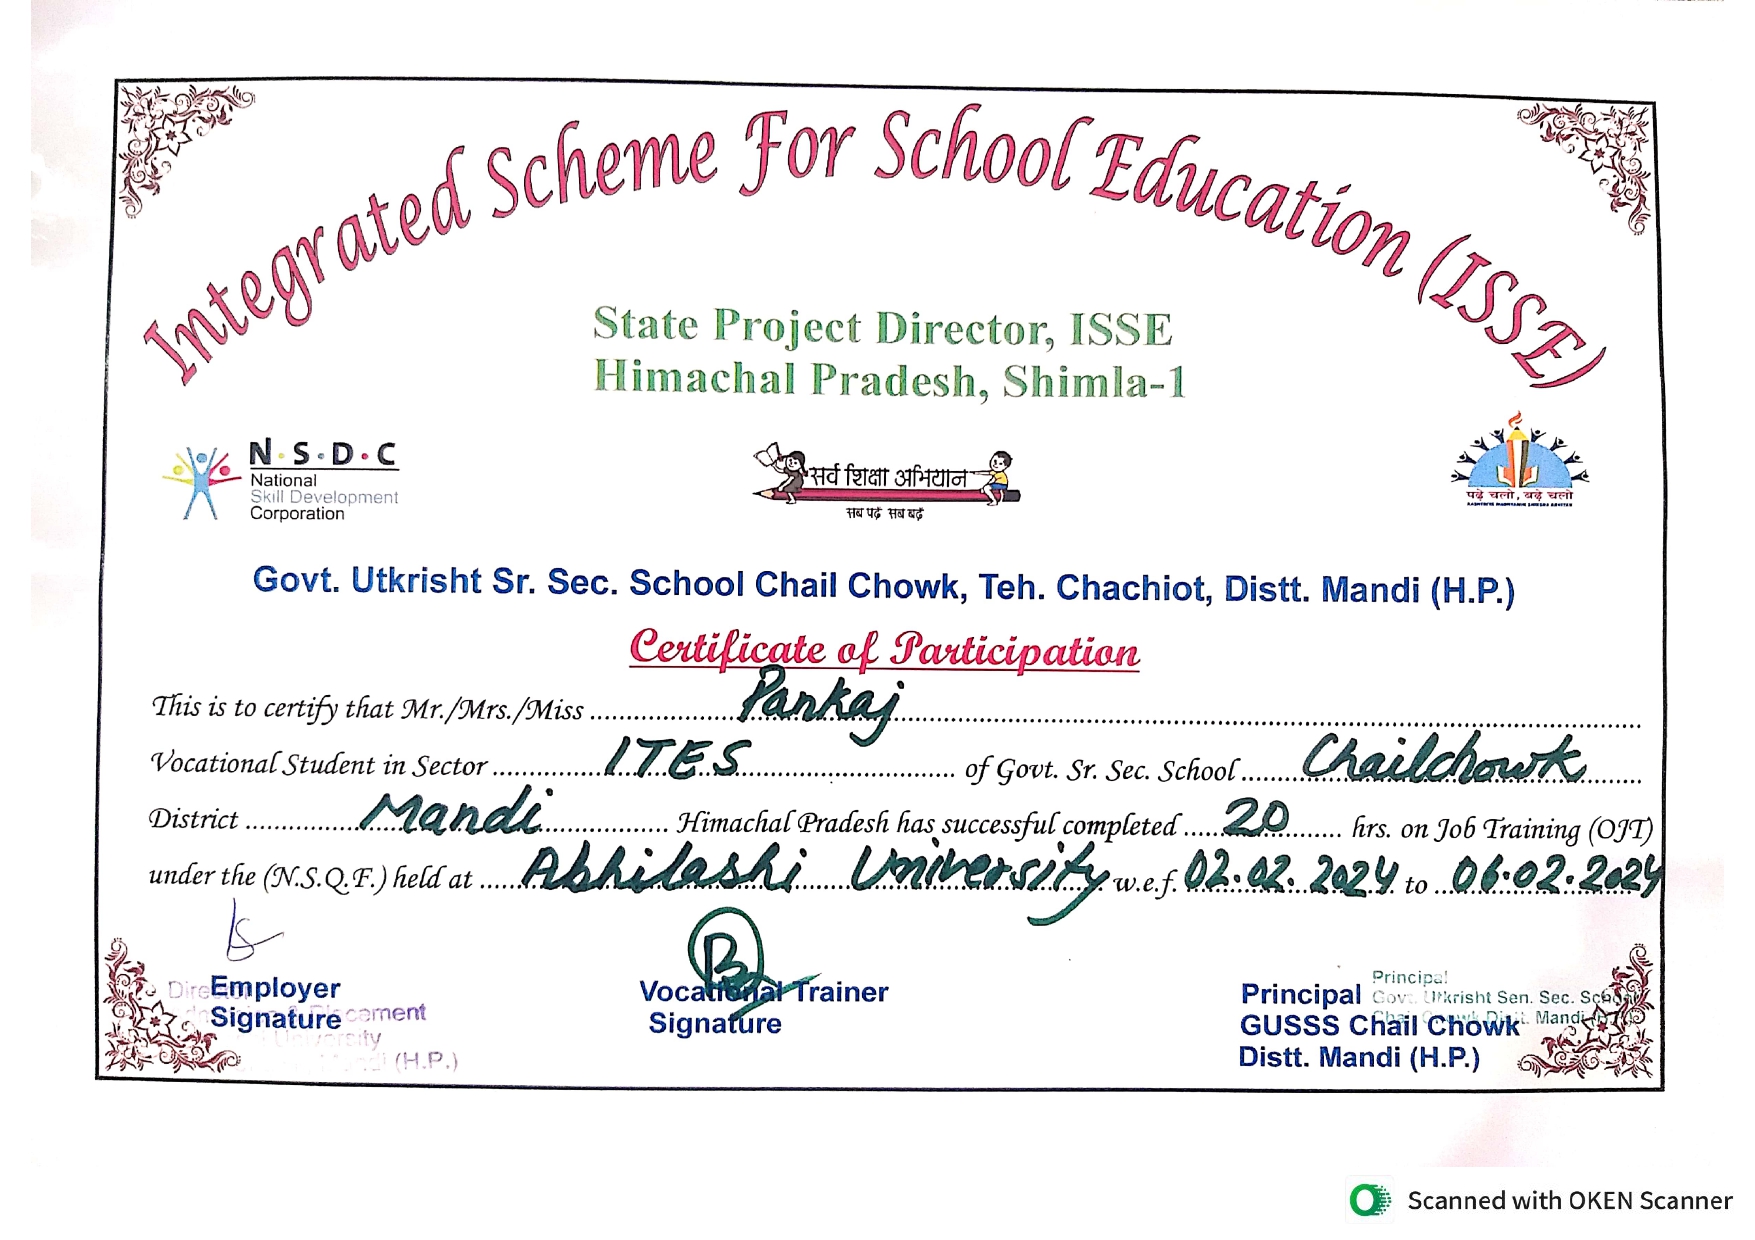 Integrated Scheme For School Education (ISSE)
State Project Director, ISSE
Himachal Pradesh, Shimla-1
N·S·D·C
National
Skill Development
Corporation
सर्व शिक्षा अभियान
सब पढ़ें सब बढ़ें
पढ़े चलो, बढ़े चलो
Govt. Utkrisht Sr. Sec. School Chail Chowk, Teh. Chachiot, Distt. Mandi (H.P.)
Certificate of Participation
This is to certify that Mr./Mrs./Miss Pankaj
Vocational Student in Sector ITES of Govt. Sr. Sec. School Chailchowk
District Mandi Himachal Pradesh has successful completed 20 hrs. on Job Training (OJT)
under the (N.S.Q.F.) held at Abhilashi University w.e.f. 02.02.2024 to 06.02.2024
Employer
Signature
(H.P.)
Vocational Trainer
Signature
Principal
Utkrisht Sen. Sec. School
Mandi
Principal
GUSSS Chail Chowk
Distt. Mandi (H.P.)
Scanned with OKEN Scanner